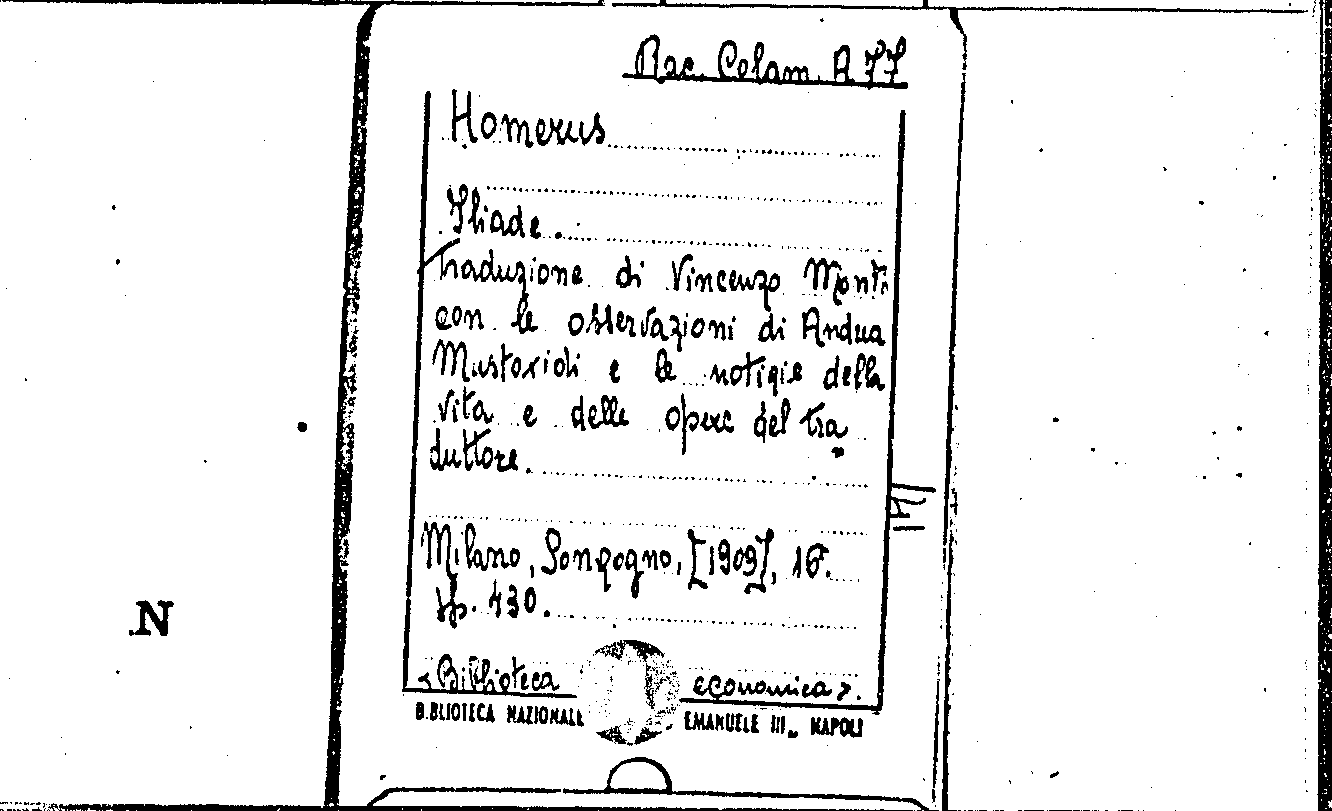 Rac. Colam. A 77
Homerus
Iliade.
Traduzione di Vincenzo Monti
con le osservazioni di Andrea
Mustoxidi e le notizie della
vita e delle opere del tra
duttore.
Milano, Sonzogno, [1909], 16°.
pp. 430.
<Biblioteca economica>.
BIBLIOTECA NAZIONALE EMANUELE III - NAPOLI
N